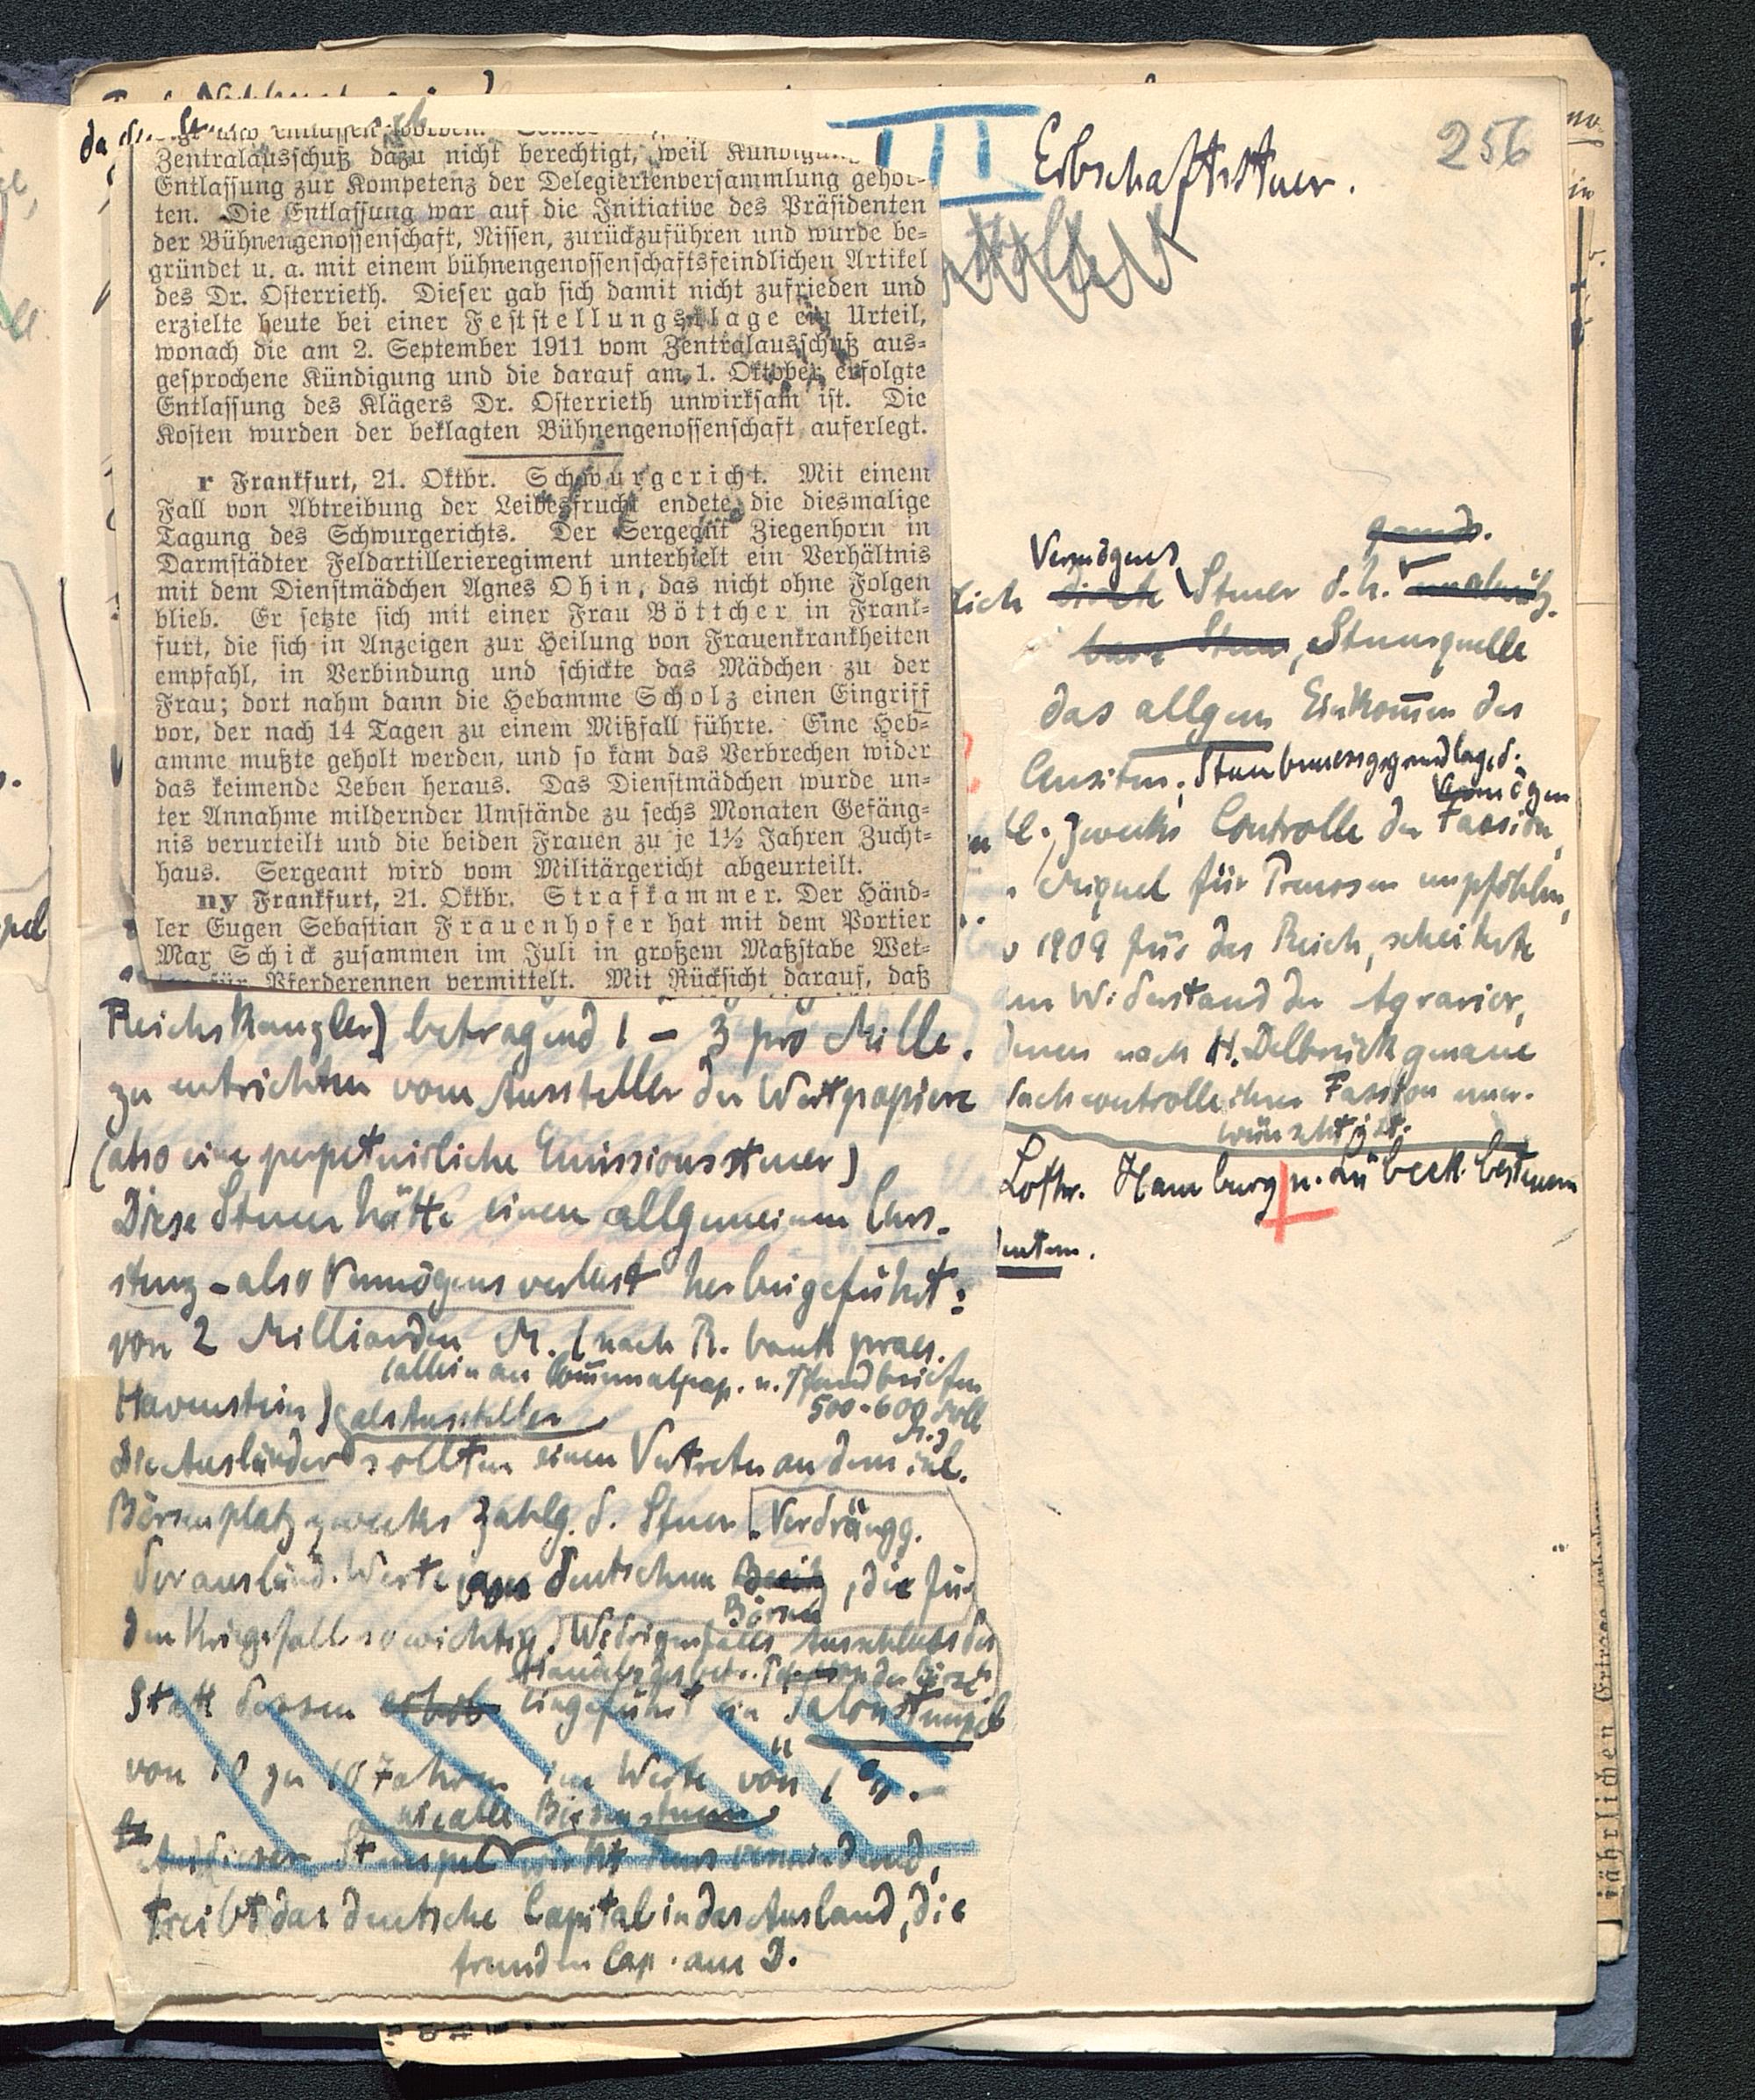 256
III Erbschaftssteuer.
Zentralausschuß dazu nicht berechtigt, weil
Entlassung zur Kompetenz der Delegiertenversammlung gehör-
ten. Die Entlassung war auf die Initiative des Präsidenten
der Bühnengenossenschaft, Nissen, zurückzuführen und wurde be-
gründet u. a. mit einem bühnengenossenschaftsfeindlichen Artikel
des Dr. Osterrieth. Dieser gab sich damit nicht zufrieden und
erzielte heute bei einer Feststellungsklage ein Urteil,
wonach die am 2. September 1911 vom Zentralausschuß aus-
gesprochene Kündigung und die darauf am 1. Oktober erfolgte
Entlassung des Klägers Dr. Osterrieth unwirksam ist. Die
Kosten wurden der beklagten Bühnengenossenschaft auferlegt.
r Frankfurt, 21. Oktbr. Schwurgericht. Mit einem
Fall von Abtreibung der Leibesfrucht endete die diesmalige
Tagung des Schwurgerichts. Der Sergeant Ziegenhorn in
Darmstädter Feldartillerieregiment unterhielt ein Verhältnis
mit dem Dienstmädchen Agnes Ohin, das nicht ohne Folgen
blieb. Er setzte sich mit einer Frau Böttcher in Frank-
furt, die sich in Anzeigen zur Heilung von Frauenkrankheiten
empfahl, in Verbindung und schickte das Mädchen zu der
Frau; dort nahm dann die Hebamme Scholz einen Eingriff
vor, der nach 14 Tagen zu einem Mißfall führte. Eine Heb-
amme mußte geholt werden, und so kam das Verbrechen wider
das keimende Leben heraus. Das Dienstmädchen wurde un-
ter Annahme mildernder Umstände zu sechs Monaten Gefäng-
nis verurteilt und die beiden Frauen zu je 1½ Jahren Zucht-
haus. Sergeant wird vom Militärgericht abgeurteilt.
ny Frankfurt, 21. Oktbr. Strafkammer. Der Händ-
ler Eugen Sebastian Frauenhofer hat mit dem Portier
Max Schick zusammen im Juli in großem Maßstabe Wet-
für Pferderennen vermittelt. Mit Rücksicht darauf, daß
Reichskanzler) betragend 1 - 3 pro Mille.
zu entrichten vom Aussteller der Wertpapiere
(also eine perpetuirliche Emissionssteuer)
Diese Steuer hätte einen allgemeinen Curs-
sturz - also Vermögensverlust herbeigeführt:
von 2 Milliarden M. (nach R. bank praes.
(allein an Com̅unalpap. u. Pfandbriefen
Havenstein) als Aussteller
500-600
Die Ausländer sollten einen Vertreter an dem inl.
Börsenplatz zwecks Zahlg. d. Steuer [Verdrängg.
der ausländ. Werte aus deutschem , die für
Börsen
den Kriegsfall so wichtig. Widrigenfalls Ausschluss des
Statt dessen erhob eingeführt ein Talonstempel
von 10 zu 10 Jahren im Werte von 1
wie alle Börsensteuern
Auch dieser Stempel wirkt kursvermindernd,
treibt das deutsche Capital in das Ausland, die
fremden Cap. aus D.
Vermögens
direkte Steuer d. h.
Steuerquelle
das allgem Einkom̅en des
Censiten; Steuerbemessgsgrundlage d.
Vermögen
zwecks Controlle der Fassion,
Miquel für Preussen empfohlen,
1909 für das Reich, scheiterte
am Widerstand der Agrarier,
denen nach H. Delbrück genaue
Nachcontrolle ihrer Fassion uner-
wünscht ist.
Lothr. Hamburg u. Lübeck besteuern